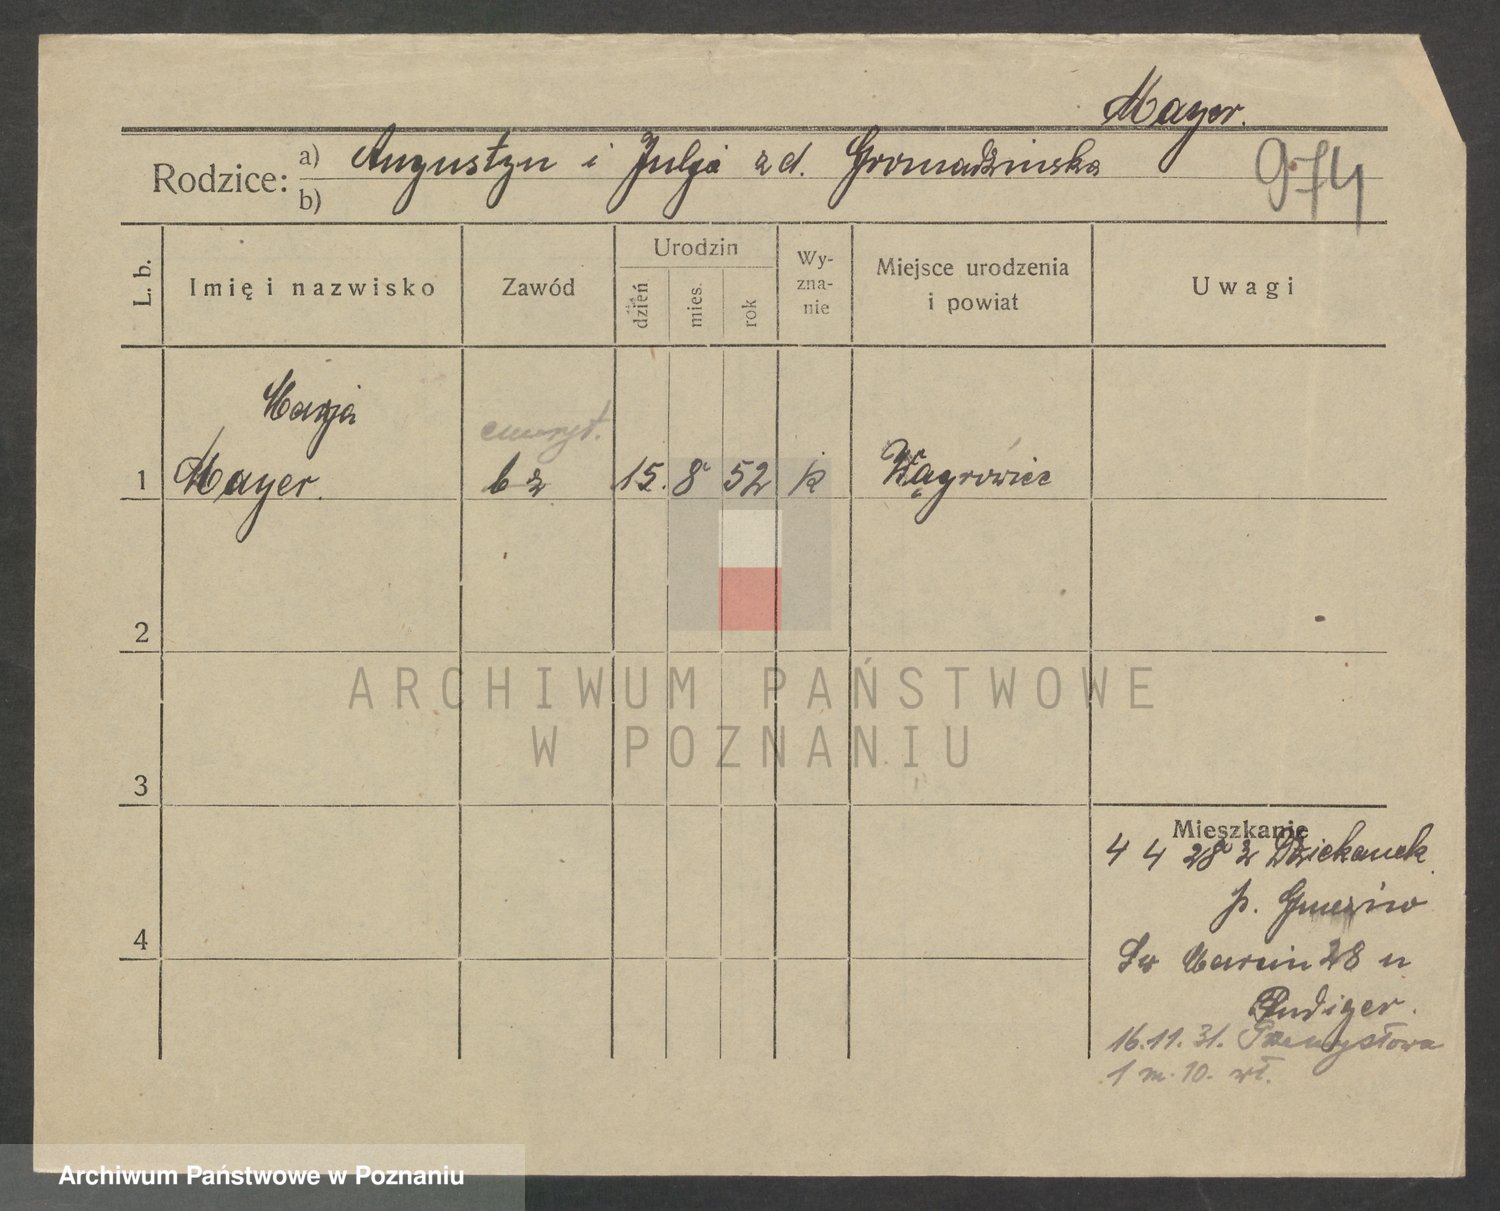 Mayer.
Rodzice: a) Augustyn i Julja z d. Gromadzinska
b)
974
L. b. Imię i nazwisko Zawód Urodzin dzień mies. rok Wyznanie Miejsce urodzenia i powiat Uwagi
Marja
emeryt.
1 Mayer. bz 15. 8 52 k Wągrówiec
2
ARCHIWUM PAŃSTWOWE
W POZNANIU
3
Mieszkanie
4 4 28 z Dziekanek
p. Gnezno
4
Św Marcin 28 u
Rudiger.
16.11.31. Przemysłowa
1 m. 10. wł.
Archiwum Państwowe w Poznaniu